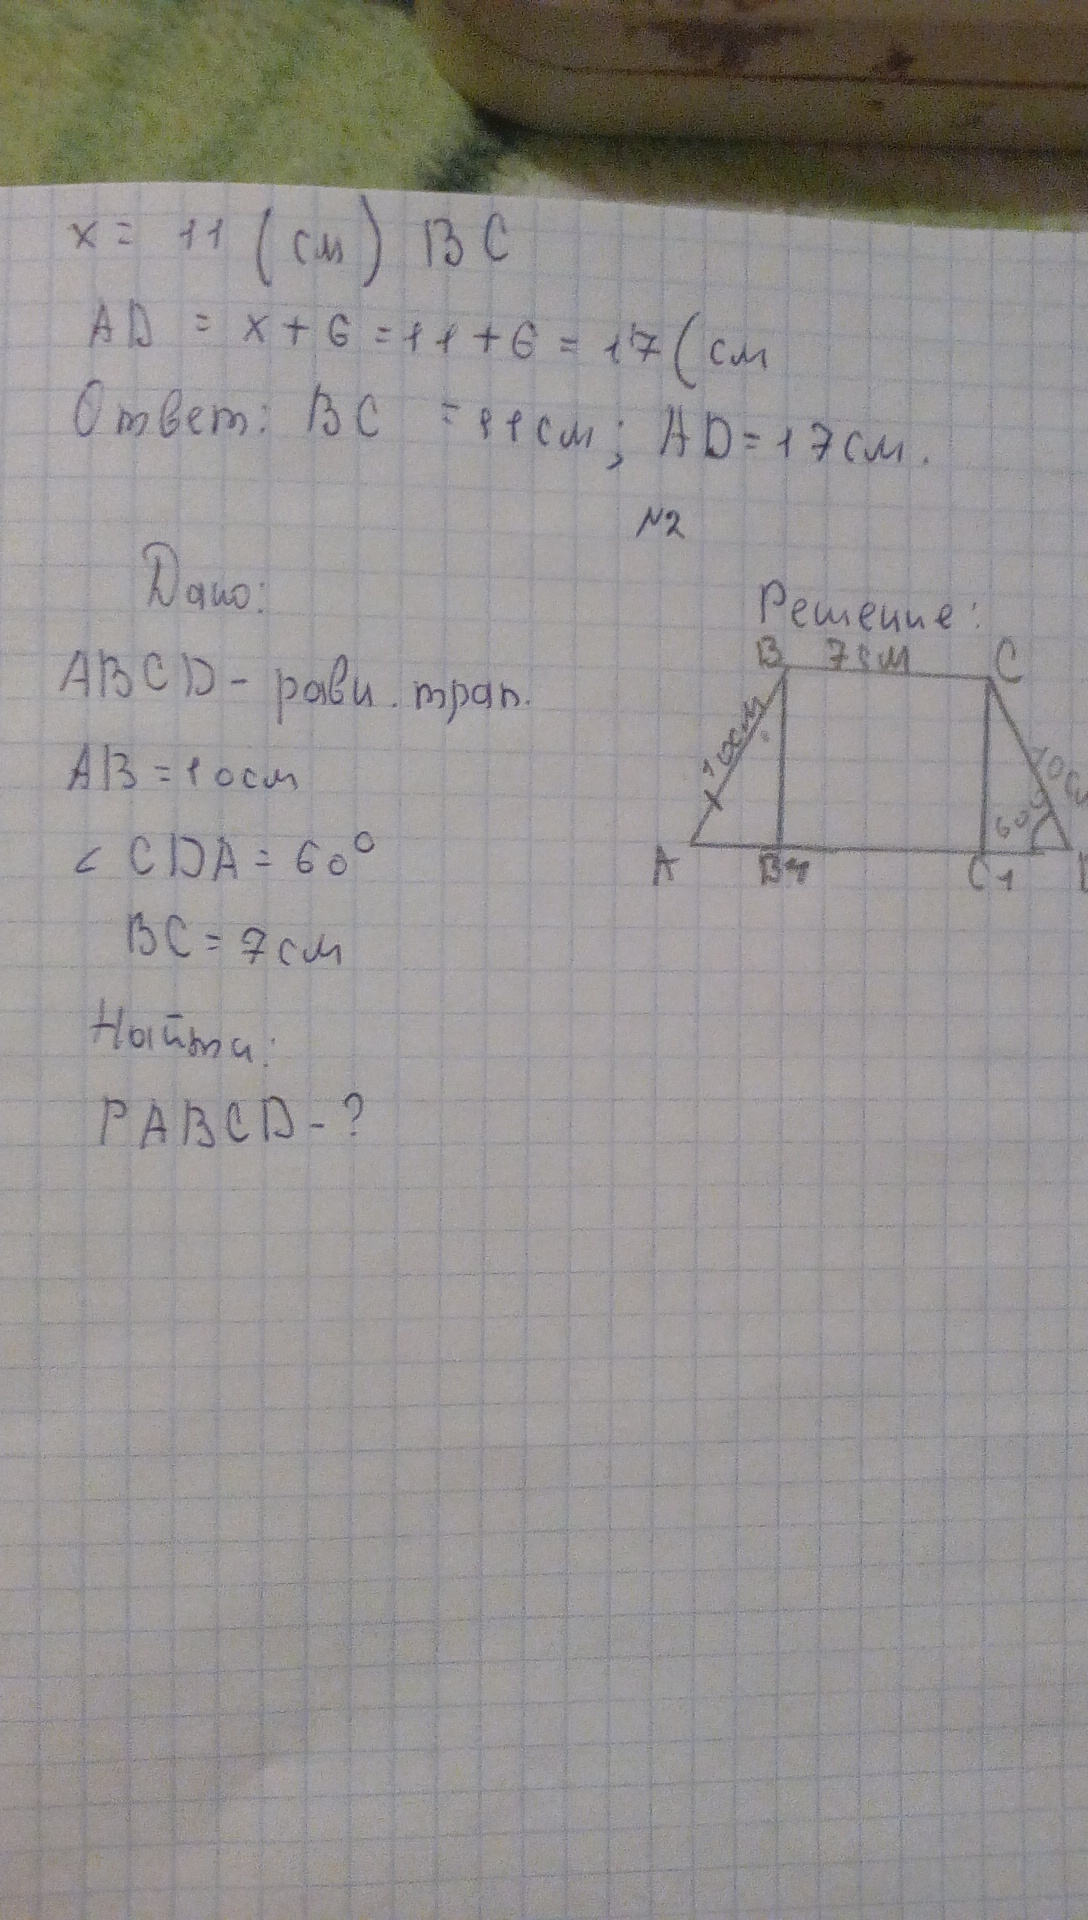 x = 11 (см) BC
AD = x + 6 = 11 + 6 = 17 (см
Ответ: BC = 11см; AD = 17см.
№2
Дано:
ABCD - равн. трап.
AB = 10см
< CDA = 60°
BC = 7см
Найти:
PABCD - ?
Решение:
B 7см C
10см
10см
60°
A B1 C1 D